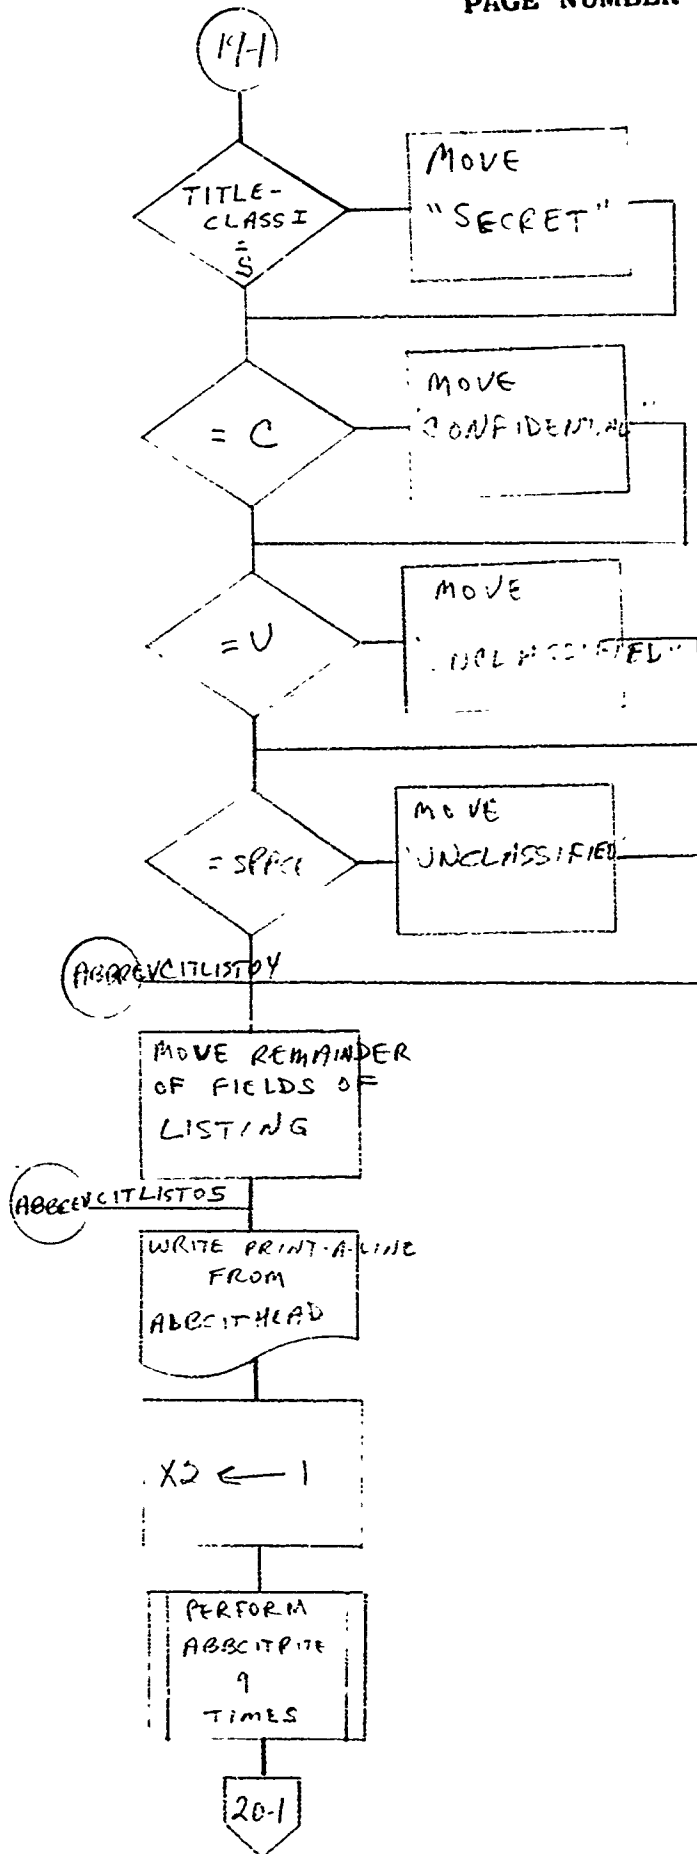 PAGE NUMBER
19-1
TITLE-
CLASSI
=
S
MOVE
"SECRET"
= C
MOVE
"CONFIDENTIAL"
= U
MOVE
= SPACE
MOVE
"UNCLASSIFIED"
ABBREVCITLIST04
MOVE REMAINDER
OF FIELDS OF
LISTING
ABBREVCITLIST05
WRITE PRINT-A-LINE
FROM
ABBCITHEAD
X2 ← 1
PERFORM
9
TIMES
20-1